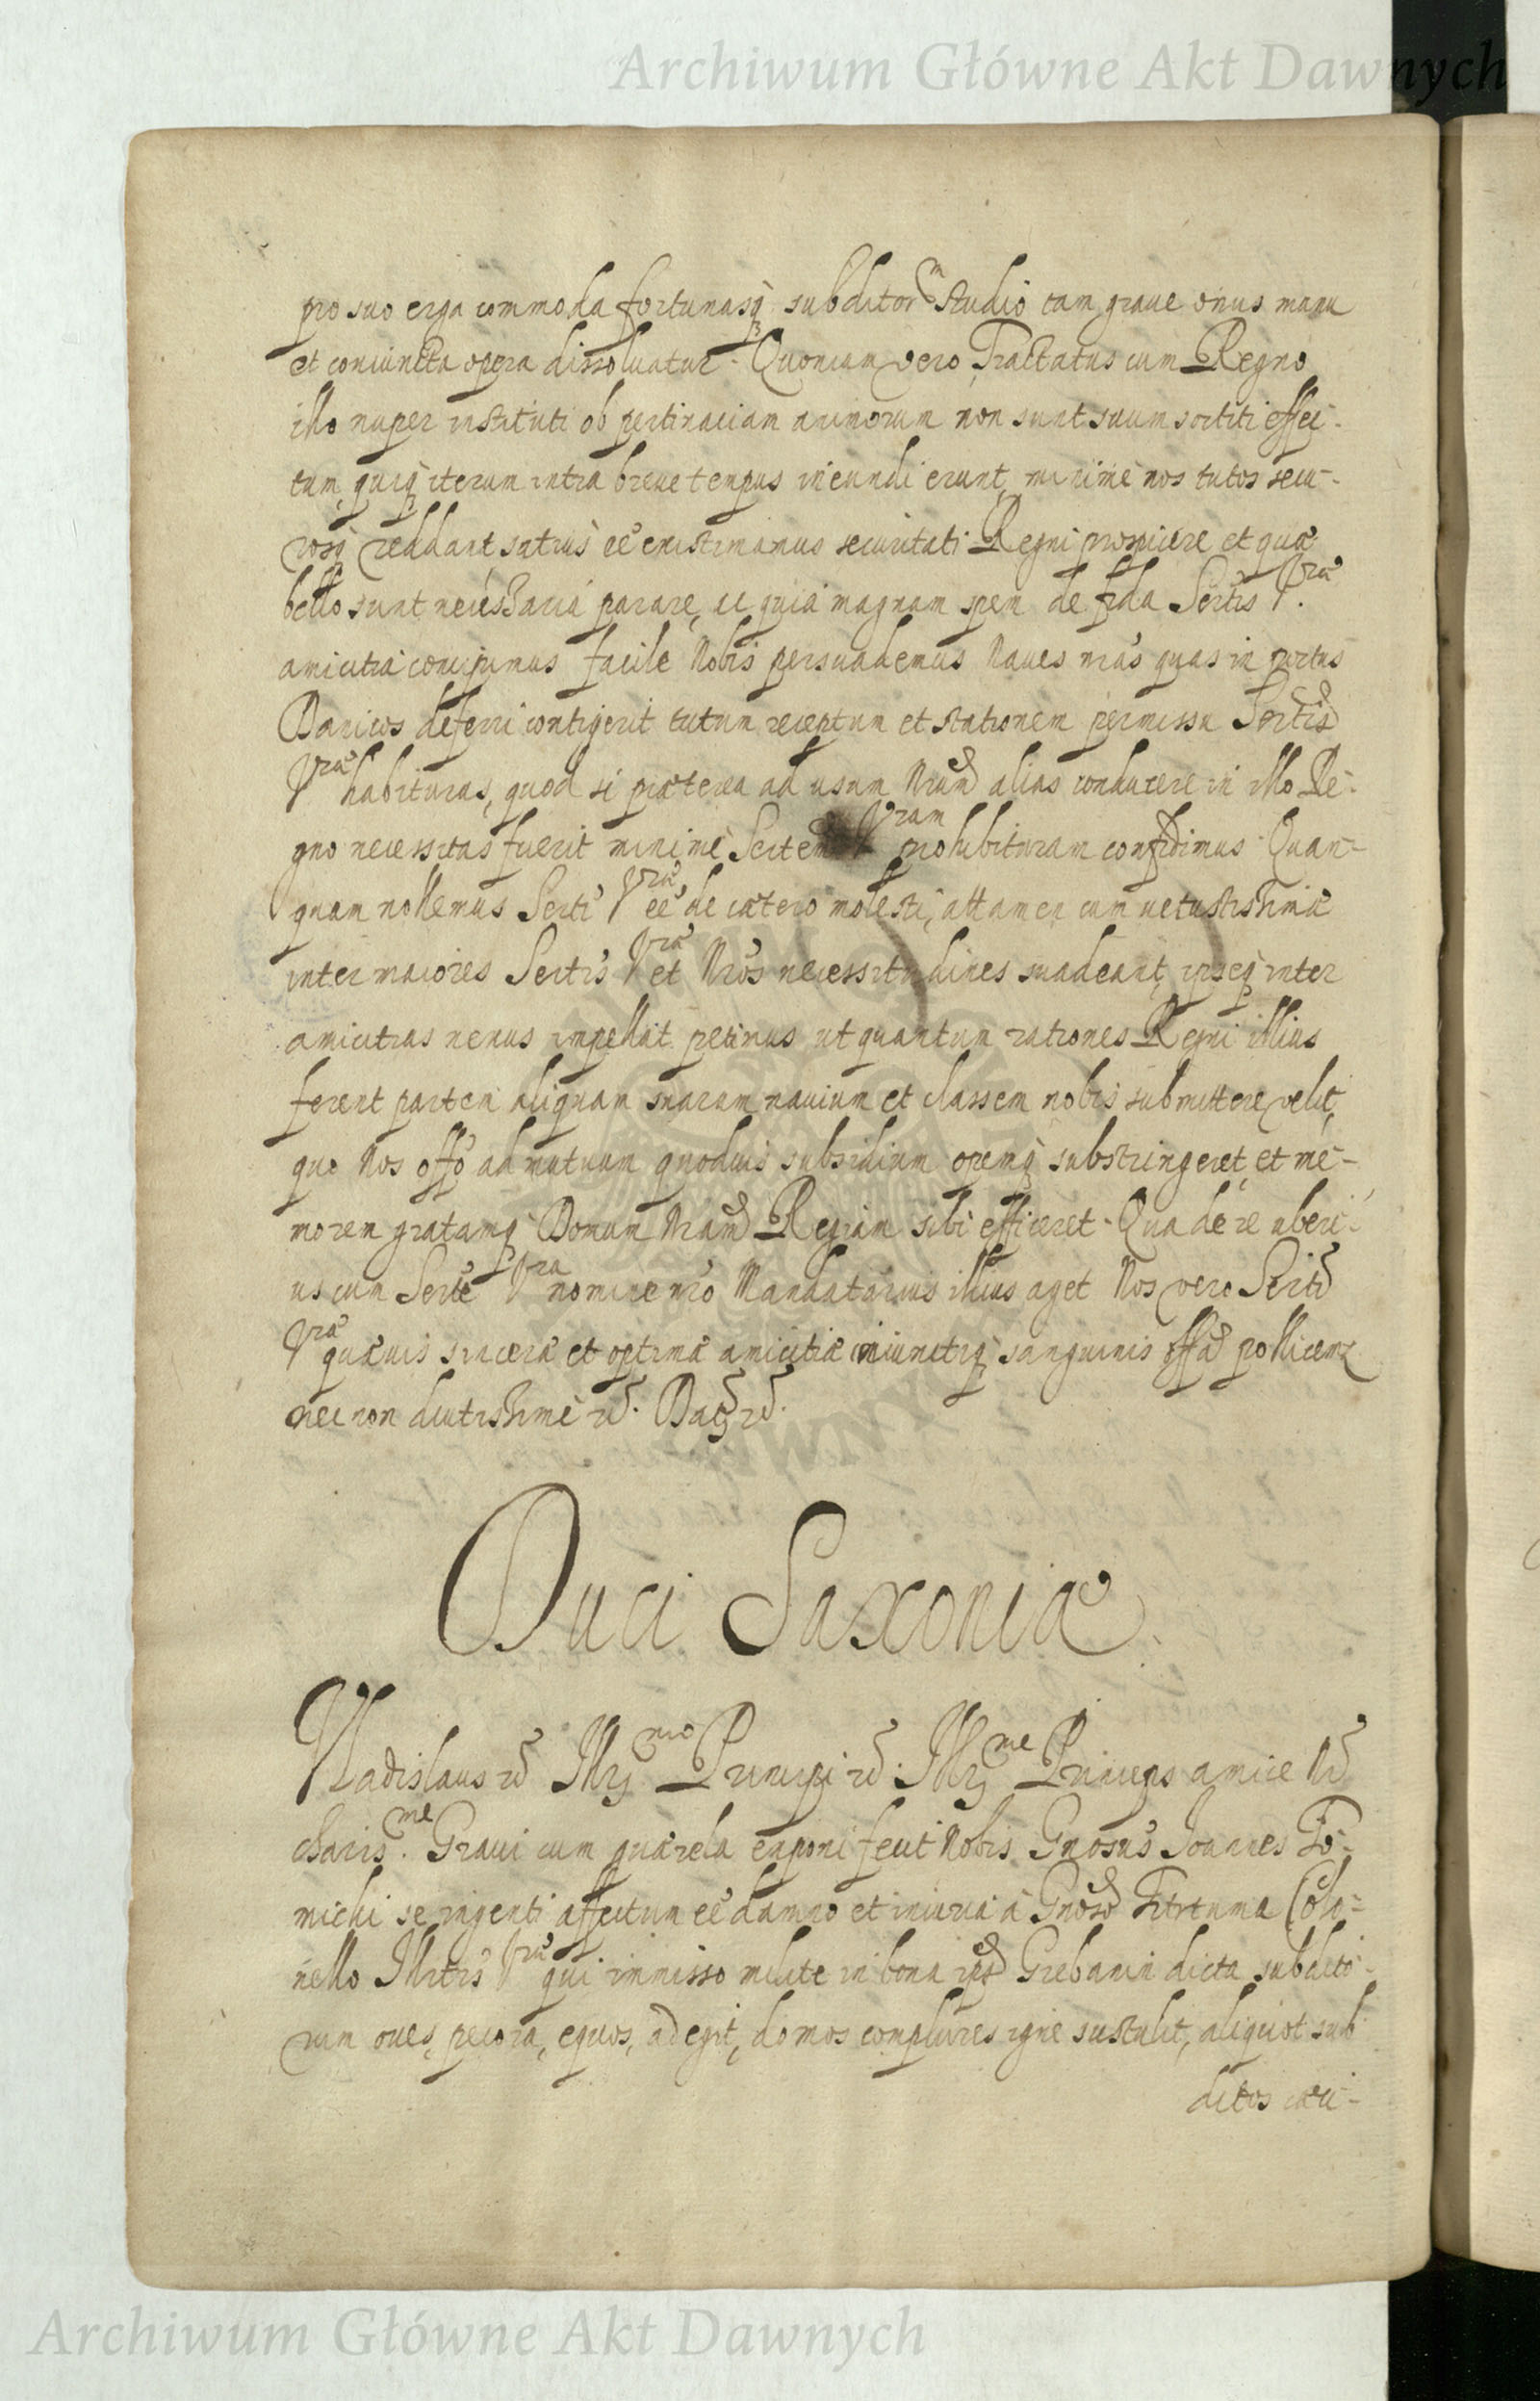 Archiwum Główne Akt Dawnych
pro suo erga commoda fortunasq́ subditorm studio tam graue onus manu
et coniuncta opera dissoluatur. Quoniam vero Tractatus cum Regno
illo nuper instituti ob pertinaciam animorum non sunt suum sortiti effec-
tum, quiq́ iterum intra breue tempus ineundi erunt, minimè nos tutos secu-
rosq́ reddant, satius eẽ existimamus securitati Regni prospicere et quæ
bello sunt necessaria parare, ac quia magnam spem de fida Sertis Vræ
amicitia concipimus facile Nobis persuademus Naues nrãs quas in portus
Danicos deferri contigerit tutum receptum et stationem permissu Sertis
Vræ habituras, quod si præterea ad usum Nrum alias conducere in illo Re-
gno necessitas fuerit minimè Sertem Vram prohibituram confidimus. Quan-
quam nollemus Serti Vræ eẽ de cætero molesti, attamen cum uetustissimæ
inter maiores Sertis Vræ et Nrõs necessitudines suadeant, ipseq́ inter
amicitias nexus impellat petimus ut quantum rationes Regni illius
ferent partem aliquam suarum nauium et classem nobis submittere velit,
quo Nos offo ad mutuum quoduis subsidium opemq́ substringeret, et me-
morem gratamq́ Domum Nram Regiam sibi efficeret. Qua de re uberi-
us cum Serte Vra nomine nrõ Mandatarius illius aget Nos vero Serti
Vræ quæuis sinceræ et optimæ amicitiæ coniunctiq́ sanguinis offa pollicemr
nec non diutissimè etc. Datt etc.
Duci Saxoniæ.
Vladislaus etc Illrsmo Principi etc. Illrsme Princeps amice Nr
charisme. Graui cum quærela exponi fecit Nobis Gnosus Joannes Bo-
michi se ingenti affectum eẽ damno et iniuria à Gnoso Fitztuma Colo-
nello Illrtis Vræ qui immisso milite in bona ips Grebanin dicta subdito-
rum oues, pecora, equos, adegit, domos complures igne sustulit, aliquot sub
ditos cæci-
Archiwum Główne Akt Dawnych